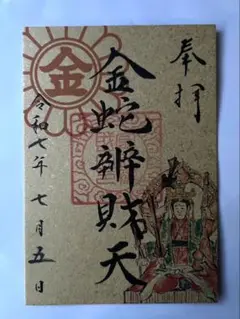 奉拝
金
金蛇辨財天
令和七年七月五日